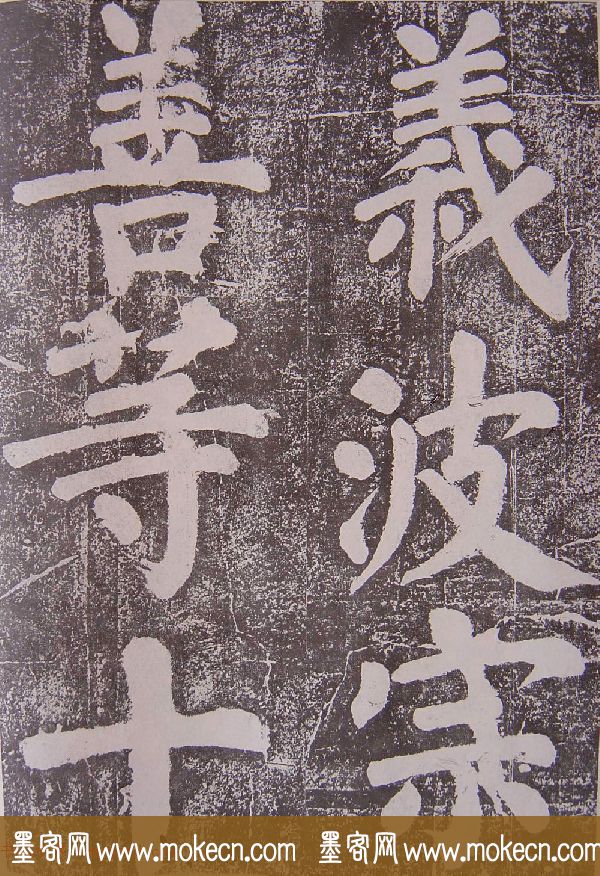 義波宗
善等十
墨客网 www.mokecn.com 墨客网 www.mokecn.com